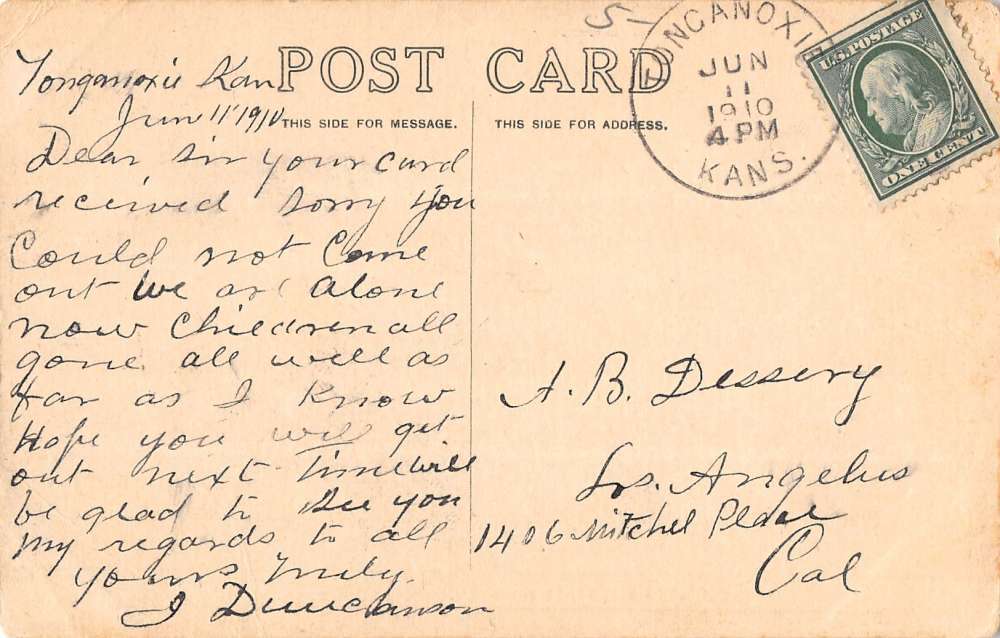 Tonganoxie Kan
Jun 11 1910
POST CARD
THIS SIDE FOR MESSAGE.
THIS SIDE FOR ADDRESS.
Dear Sir your card
received sorry you
Could not Come
out We are alone
now Children all
gone all well as
far as I Know
Hope you will get
out next time will
be glad to See you
My regards to all
yours Truly
J Duncanson
TONGANOXIE
JUN
11
1910
4 PM
KANS.
U.S. POSTAGE
ONE CENT
A. B. Dessery
Los. Angelus
1406 Mitchel Place
Cal